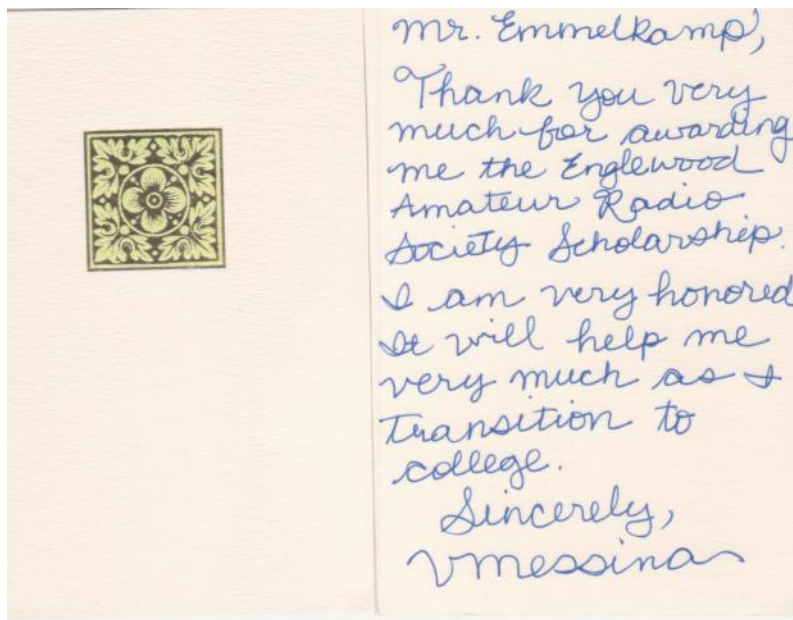 Mr. Emmelkamp,
Thank you very
much for awarding
me the Englewood
Amateur Radio
Society Scholarship.
I am very honored
It will help me
very much as I
transition to
college.
Sincerely,
VMessina